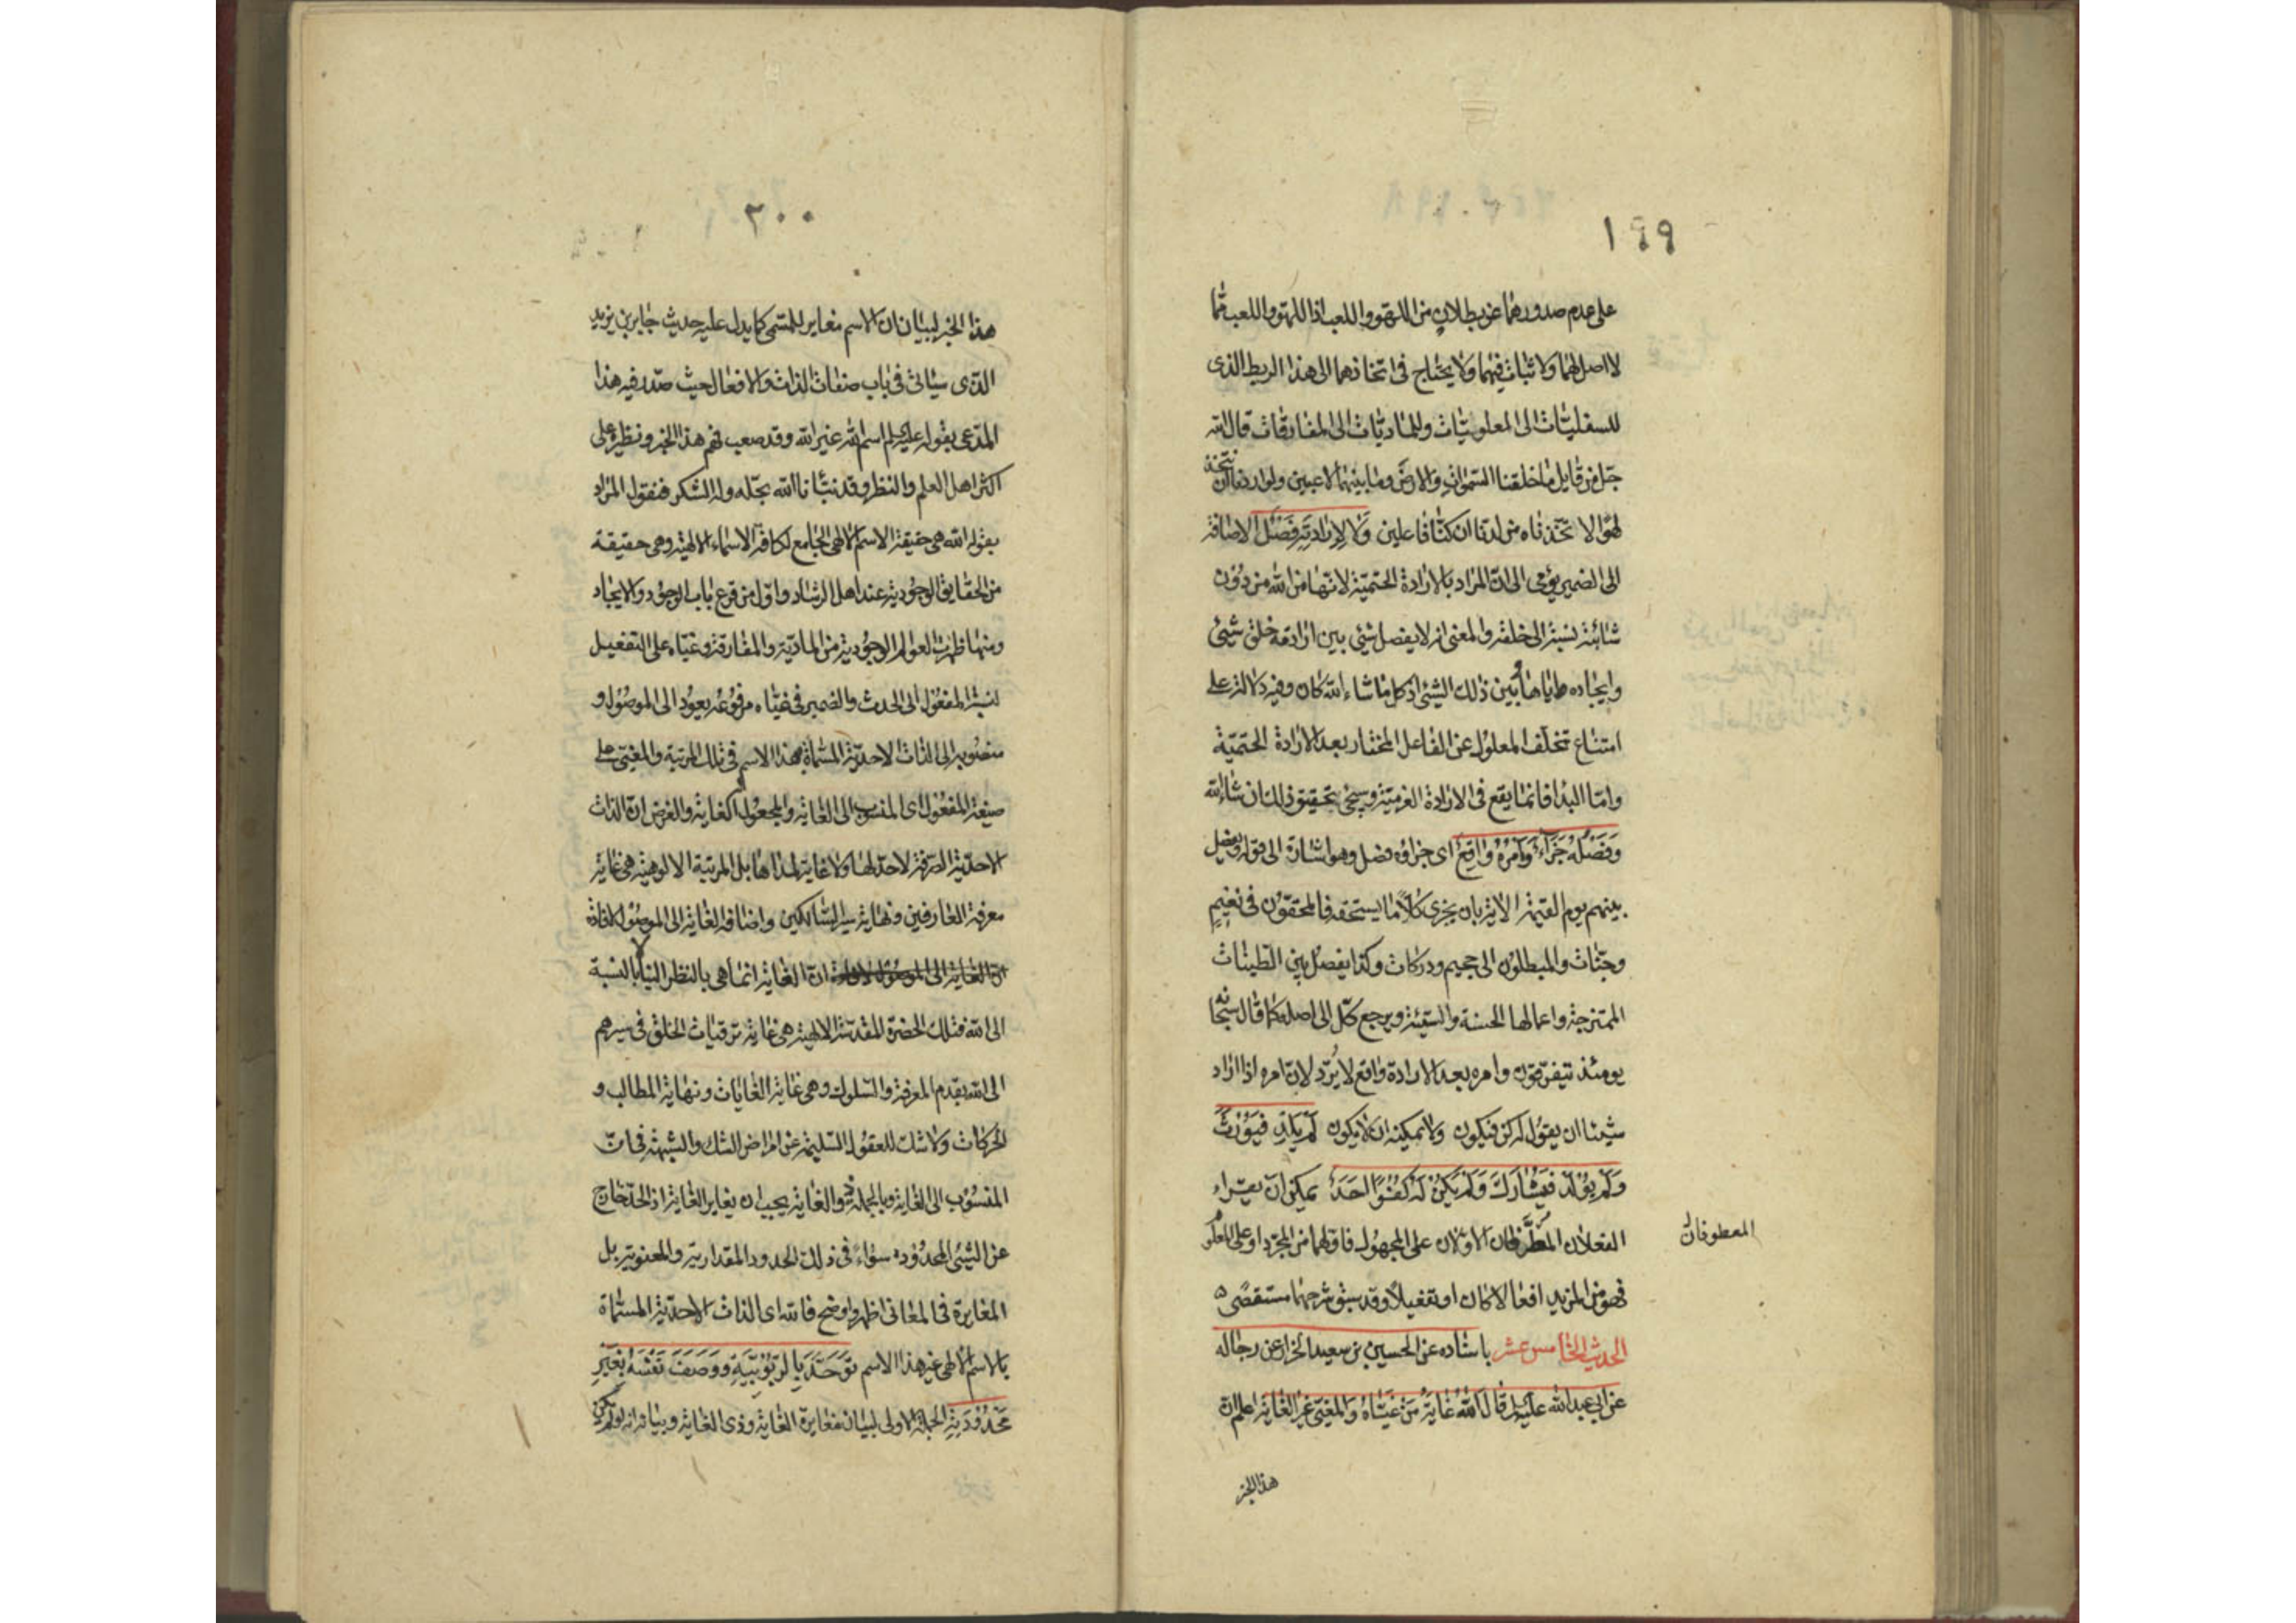 ١٩٩
على عدم صدورهما عن بطلان من اللهو واللعب اذا اللهو واللعب مما
لا اصل لهما ولا ثبات فيهما ولا يحتاج في اتخاذهما الى هذا الربط الذى
للسفليات الى المعلوميات وللماديات الى المفارقات قال الله
جل من قايل ما خلقنا السموات والارض وما بينهما لاعبين ولو اردنا ان نتخذ
لهوا لا تخذناه من لدنا ان كنا فاعلين وَلا لِاِرادَتِهِ فَصْلٌ الاضافة
الى الضمير يؤمى الى ان المراد بالارادة الحتمية لانها من الله من دون
شائبة نسبة الى خلقه والمعنى انه لا يفصل شئ بين ارادته خلق شئ
وايجاده اياها وبين ذلك الشئ اذ كل ما شاء الله كان وفيه دلالة على
امتناع تخلف المعلول عن الفاعل المختار بعد الارادة الحتمية
واما البدا فانما يقع فى الارادة العزمية وسيجئ تحقيق ذلك ان شاء الله
وَفَصْلُهُ جَزَاءٌ وَاَمْرُهُ وَاقِعٌ اى جزاؤه فصل وهو اشارة الى قوله يفصل
بينهم يوم القيمة الاية بان يجزى كلا ما يستحقه فالمحقون فى نعيم
وجنات والمبطلون الى جحيم ودركات وكذا يفصل بين الطينات
الممتزجة واعمالها الحسنة والسيئة ويرجع كل الى اصله كما قال سبحانه
يومئذ يتفرقون وامره بعد الارادة واقع لا يُرد لان امره اذا اراد
شيئا ان يقول له كن فيكون ولا يمكنه ان لا يكون لَمْ يَلِدْ فَيُوْرَثُ
وَلَمْ يُوْلَدْ فَيُشَارَكَ وَلَمْ يَكُنْ لَهُ كُفُوًا اَحَدٌ يمكن ان يقراء
الفعلان الاولان على المجهول فاولهما من المجرد او على المعلوم
المعطوفان
فهو من المزيد افعالا كان او تفعيلا وقد سبق شرحهما مستقصى
الحديث الخامس عشر باسناده عن الحسين بن سعيد الخزاز عن رجاله
عن ابى عبد الله عليه السلم قال اَللّٰهُ غَايَةُ مَنْ غَيَّاهُ وَالمُغَيّى غَيْرُ الغَايَةِ اعلم ان
هذا الخبر
٢٠٠
هذا الخبر لبيان ان الاسم مغاير للمسمى كما يدل عليه حديث جابر بن يزيد
الذى سياتى فى باب صفات الذات والافعال حيث صدر فيه هذا
المدعى بقوله عليه السلم اسم الله غير الله وقد صعب فهم هذا الخبر ونظيره على
اكثر اهل العلم والنظر وقد نبأنا الله بحله وله الشكر فنقول المراد
بقوله الله هى حقيقة الاسم الالهى الجامع لكافة الاسماء الالهية وهى حقيقة
من الحقايق الوجودية عند اهل الرشاد واول من قرع باب الوجود والايجاد
ومنها ظهرت العوالم الوجودية من المادية والمفارقة وغياه على التفعيل
لنسبة المفعول الى الحدث والضمير فى غياه مرفوعه يعود الى الموصول و
منصوبه الى الذات الاحدية المسماة بهذا الاسم فى تلك المرتبة والمغيى على
صيغة المفعول اى المنسوب الى الغاية والمجعول له الغاية والغرض ان الذات
الاحدية الصرفة لا حد لها ولا غاية لمداها بل المرتبة الالوهية هى غاية
معرفة العارفين ونهاية سير السالكين واضافة الغاية الى الموصول لافادة
ان الغاية انما هى بالنظر الينا لا بالنسبة
الى الله فتلك الحضرة المقدسة الالهية هى غاية ترقيات الخلق فى سيرهم
الى الله بقدم المعرفة والسلوك وهى غاية الغايات ونهاية المطالب و
الحركات ولا شك للعقول السليمة عن امراض الشك والشبهة فى ان
المنسوب الى الغاية وبالجملة ذو الغاية يجب ان يغاير الغاية اذ الحد خارج
عن الشئ المحدود به سواء فى ذلك الحدود المقدارية والمعنوية بل
المغايرة فى المعانى اظهر واوضح فالله اى الذات الاحدية المسماة
بالاسم الالهى غير هذا الاسم تَوَحَّدَ بِالرُّبُوْبِيَّةِ وَوَصَفَ نَفْسَهُ بِغَيْرِ
مَحْدُوْدِيَّةٍ الجملة الاولى لبيان مغايرة الغاية وذى الغاية وبيانه انه لو لم يكن